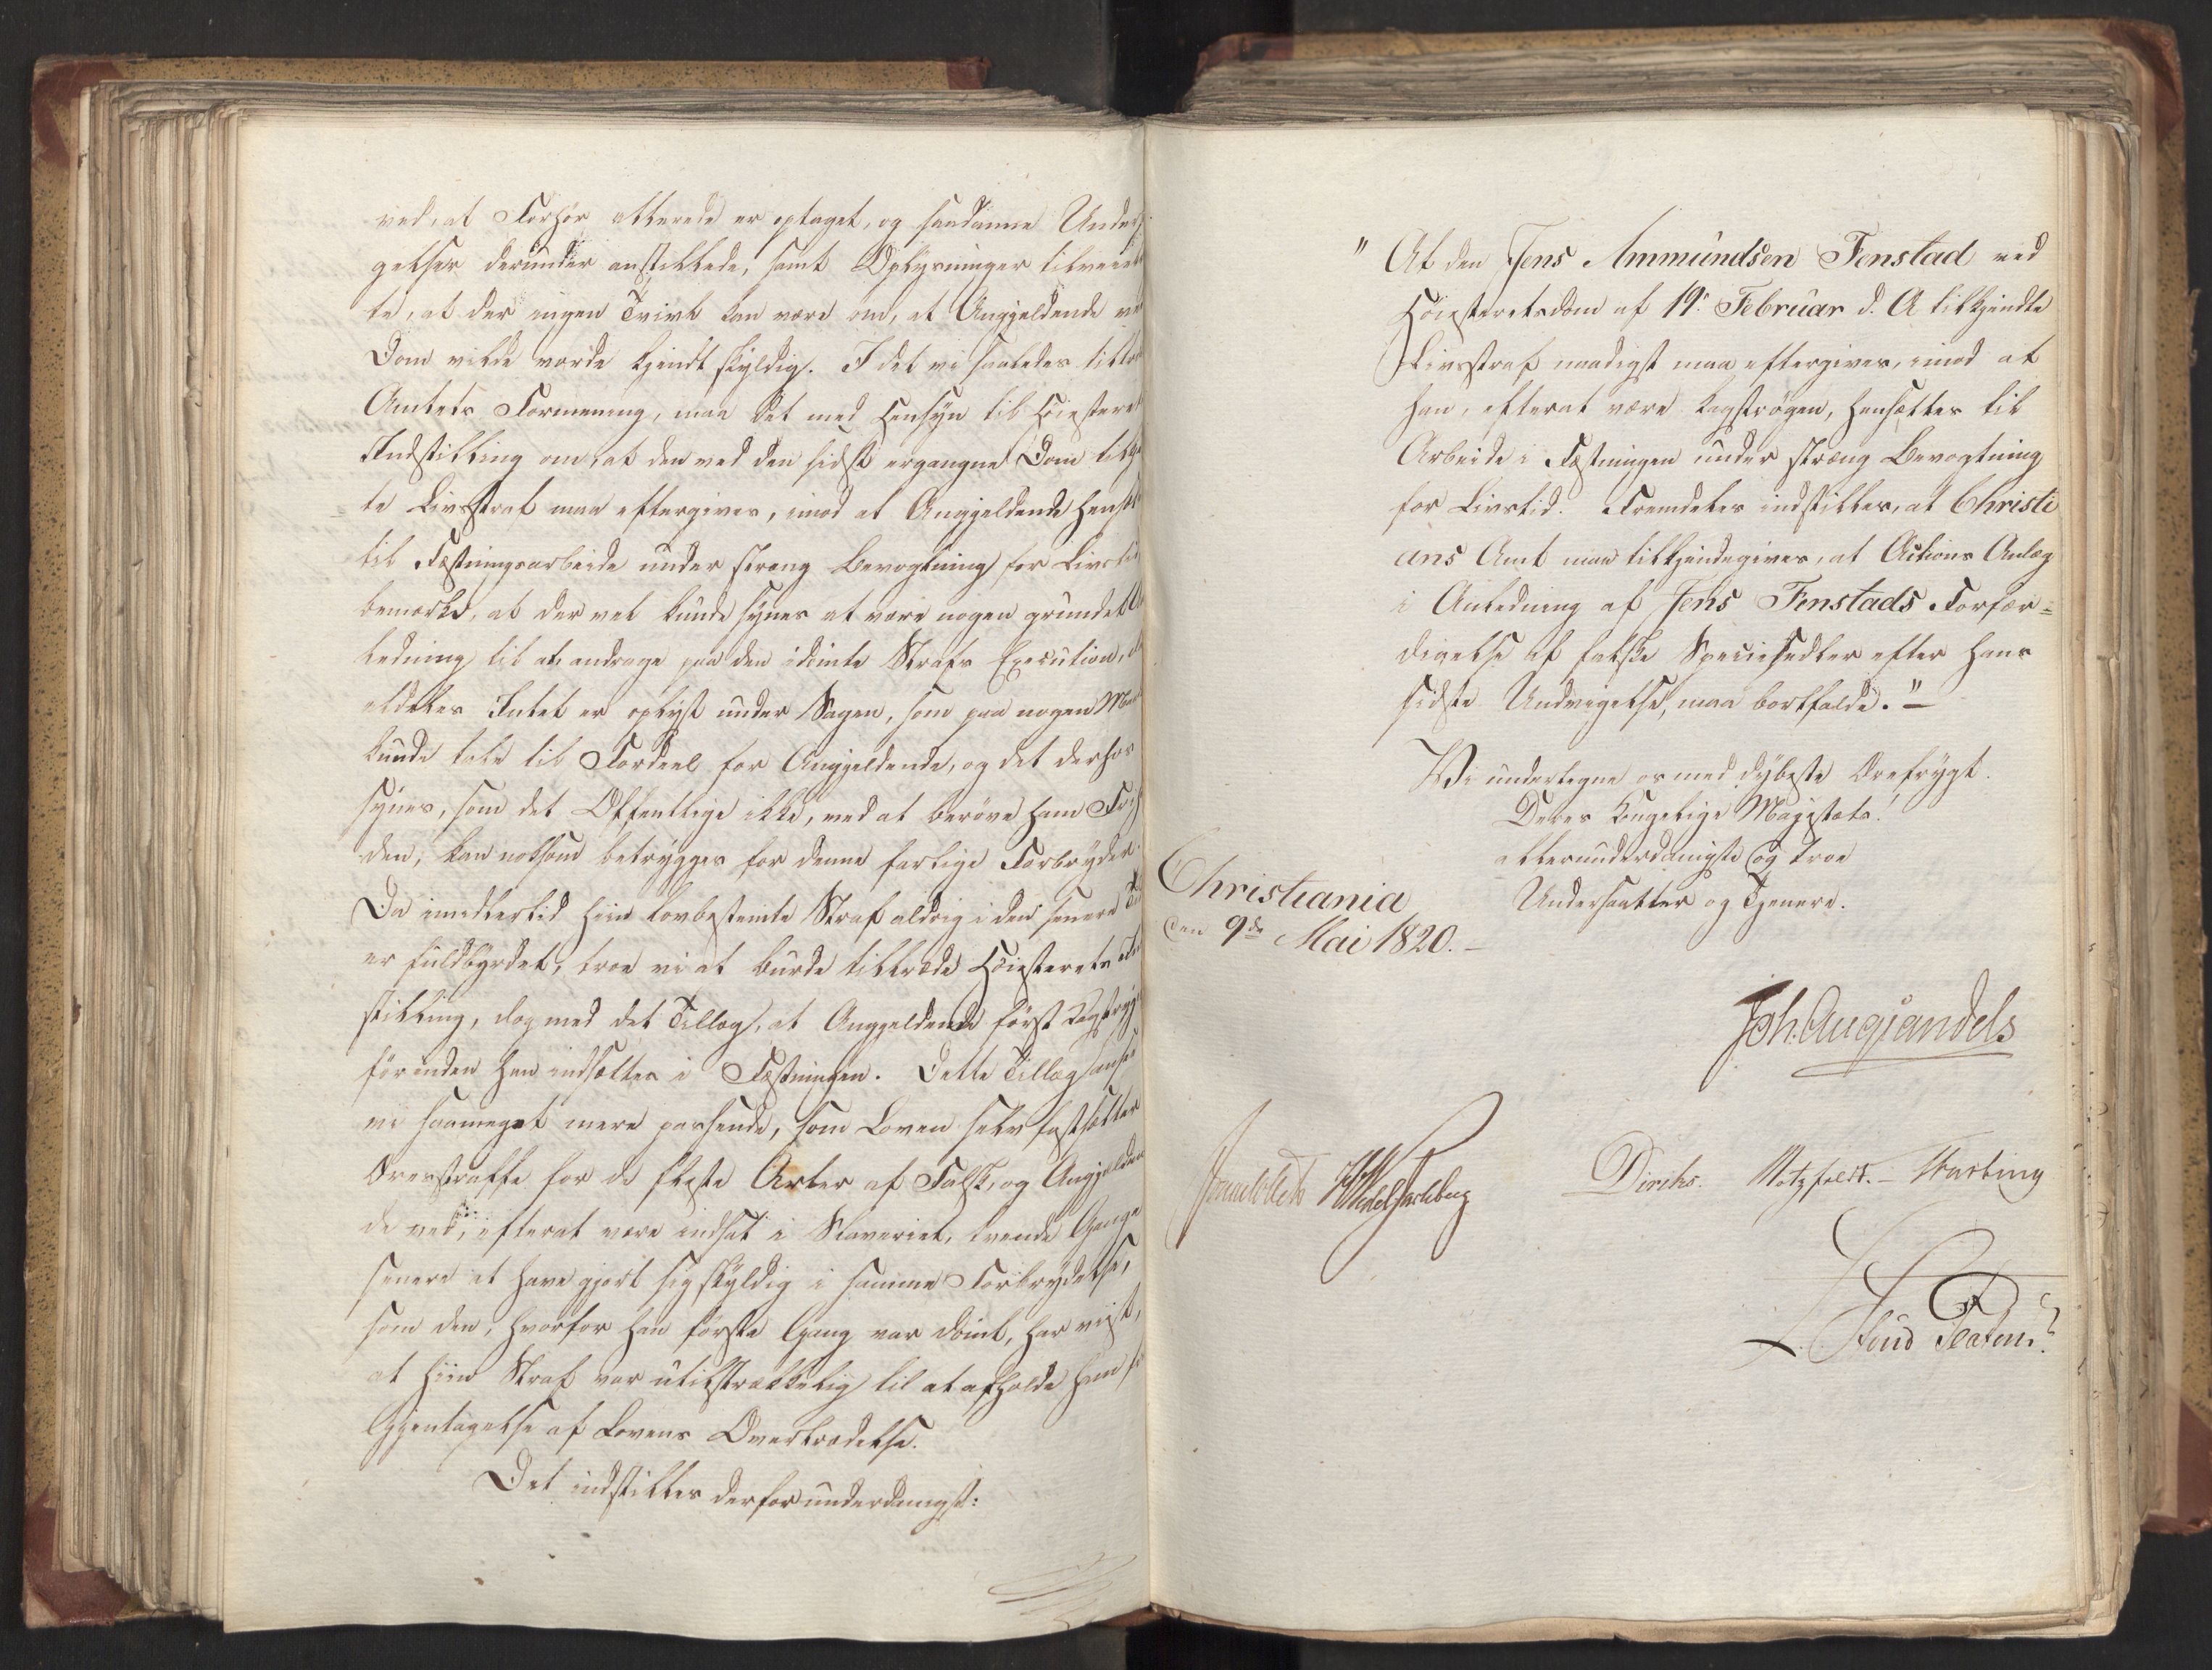 ved, at Forhør allerede er optaget, og saadanne Under
gelser derunder anstillede, samt Oplysninger tilveie
te, at der ingen Tvivl kan være om, at Angjeldende ve
Dom vilde vorde kjendt skyldig. I det vi saaledes
Amtets Formening, maa det med Hensyn til Høiestere
Indstilling om, at den ved den sidst ergangne Dom
te Livsstraf maa eftergives, imod at Angjeldende Hens
til Fæstningsarbeide under streng Bevogtning for Livs
bemærkes, at der vel kunde synes at være nogen grundet
ledning til at andrage paa den idømte Strafs Execution,
aldeles Intet er oplyst under Sagen, som paa nogen
kunde tale til Fordeel for Angjeldende, og det derhos
synes, som det Offentlige ikke, ved at berøve ham Frih
den, kan noksom betrygges for denne farlige Forbryder.
Da imidlertid hiin lovbestemte Straf aldrig i den senere Tid
er fuldbyrdet, troe vi at burde tiltræde Høiesterets
stilling, dog med det Tillæg, at Angjeldende først Kagstryg
førinden han indsættes i Fæstningen. Dette Tillæg ansee
vi saameget mere passende, som Loven selv fastsætter
Æresstraffe for de fleste Arter af Falsk, og Angjelden
de ved, efterat være indsat i Slaveriet, tvende Gange
senere at have gjort sig skyldig i samme Forbrydelse,
som den, hvorfor han første Gang var dømt, har viist,
at hiin Straf var utilstrækkelig til at afholde ham
Gjentagelse af Lovens Overtrædelse.
Det indstilles derfor underdanigst:
" At den Jens Ammundsen Fenstad ved
Høiesteretsdom af 19. Februar d. A tilkjendte
Livsstraf naadigst maa eftergives, imod at
han, efterat være kagstrøgen, hensættes til
Arbeide i Fæstningen under streng Bevogtning
for Livstid. Fremdeles indstilles, at Christi
ans Amt maa tilkjendegives, at Actions Anlæg
i Anledning af Jens Fenstads Forfær=
digelse af falske Speciesedler efter hans
sidste Undvigelse, maa bortfalde." -
Vi undertegne os med dybeste Ærefrygt.
Deres Kongelige Majestæts!
allerunderdanigste og troe
Undersaatter og Tjenere.
Christiania
den 9de Mai 1820. -
Joh. Aug Sandels
Diriks. Motzfeldt. -